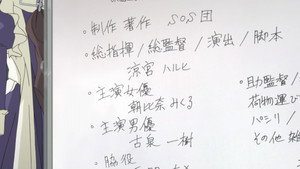 ・制作著作 SOS団
・総指揮/総監督/演出/脚本
涼宮ハルヒ
・主演女優
朝比奈みくる
・主演男優
古泉一樹
・脇役
・助監督/
荷物運び
パシリ/
その他雑